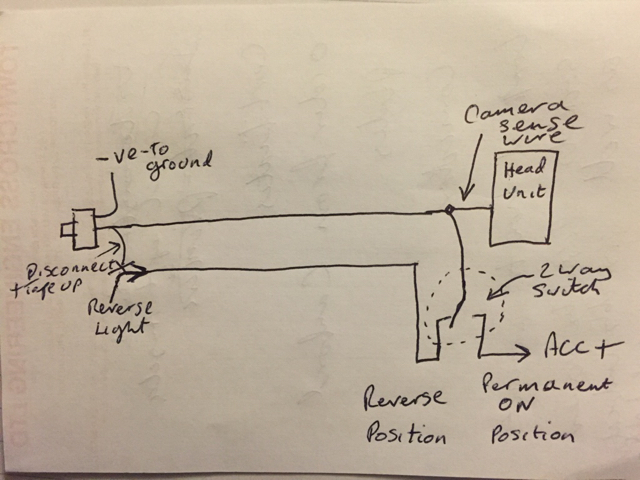 Camera
sense
wire
-ve-To
ground
Head
Unit
Disconnect
+ tape up
Reverse
Light
2 way
Switch
ACC +
Reverse
Position
Permanent
ON
Position